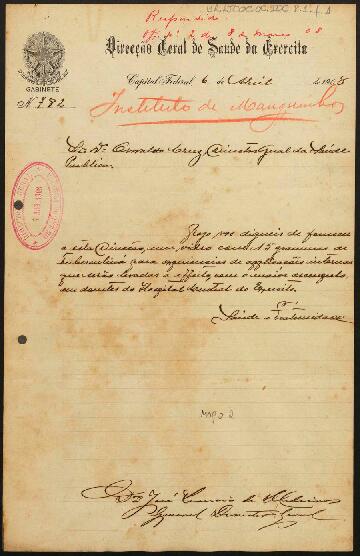 Respondido
Off. nº 2 de 8 de março 08
Direcção Geral de Saude do Exercito
GABINETE
Nº 782
Capital Federal, 6 de Abril de 1908
Instituto de Manguinhos
Sr. Dr. Oswaldo Cruz, Director Geral da Saúde
Publica.
Rogo vos digneis de fornecer
a esta Direcção, um vidro com 15 grammas de
tuberculina para experiencias de applicações internas
que serão levadas a effeito, com o maior
em doentes do Hospital Central do Exercito.
Saúde e Fraternidade
Mapo 2
Dr. José de Medeiros
General Director Geral